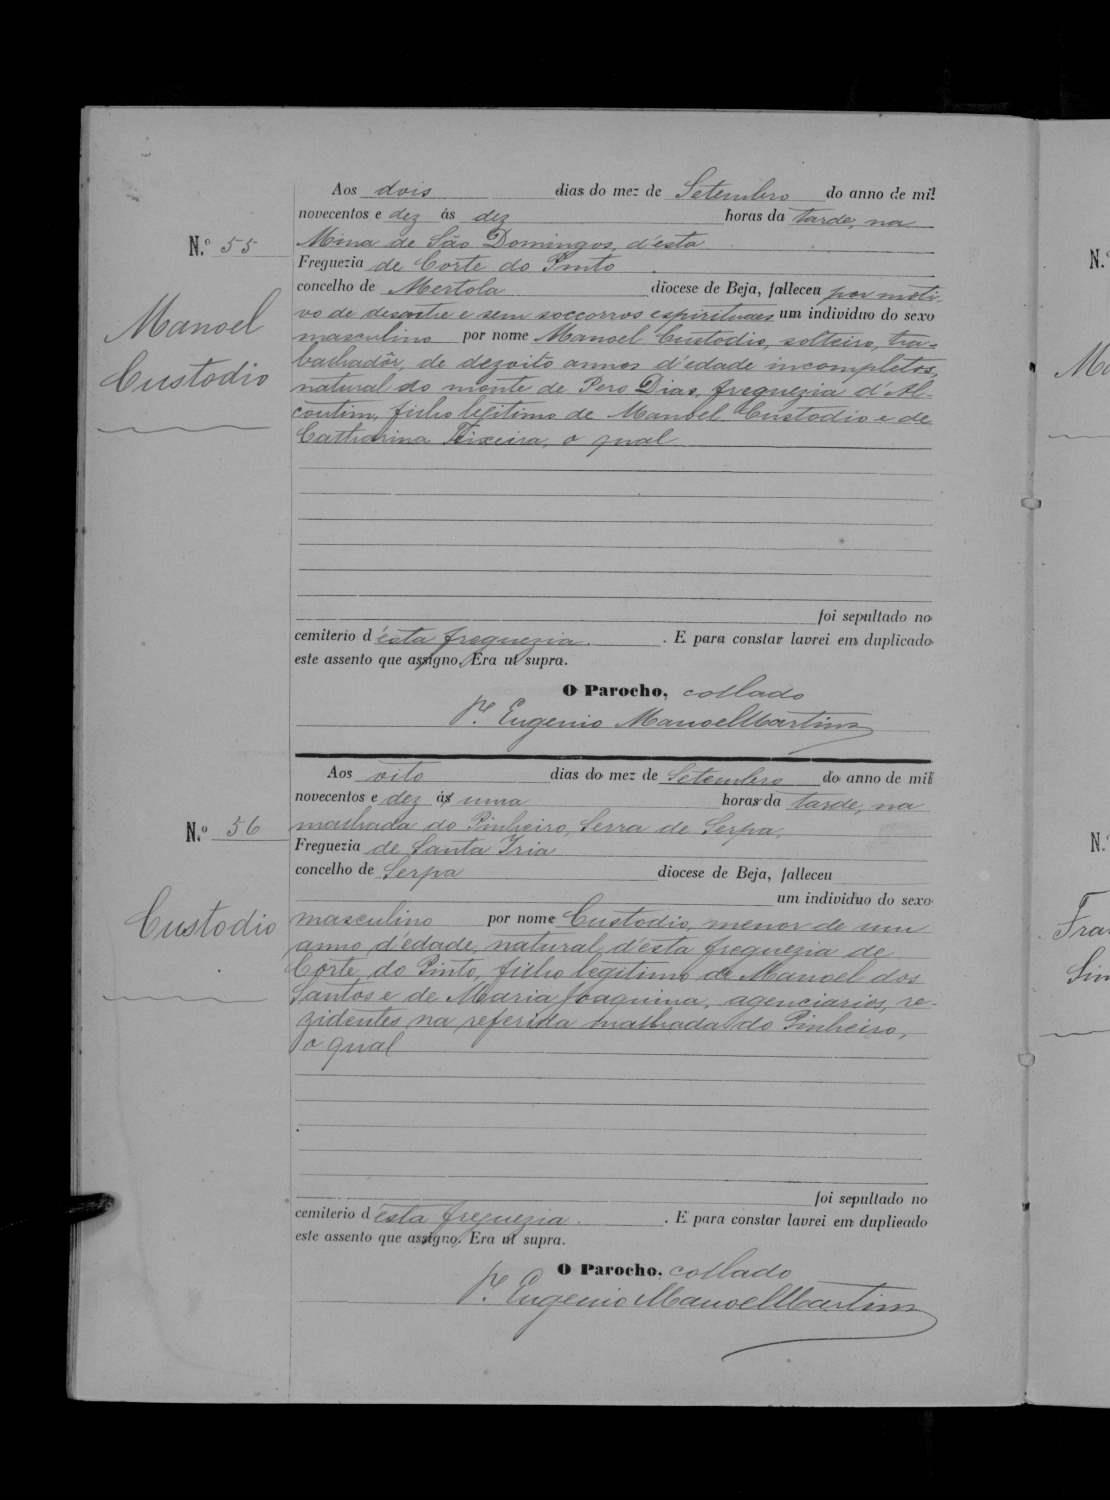 Aos dois dias do mez de Setembro do anno de mil
novecentos e dez ás dez horas da tarde, na
N.º 55
Mina de São Domingos, d'esta
Freguezia de Corte do Pinto
concelho de Mertola diocese de Beja, falleceu por moti-
vo de desastre e sem soccorros espirituaes um individuo do sexo
Manoel
Custodio
masculino por nome Manoel Custodio, solteiro, tra-
balhadôr, de dezoito annos d'edade incompletos,
natural do monte de Pero Dias, freguezia d'Al-
coutim, filho legitimo de Manoel Custodio e de
Catharina Teixeira, o qual
foi sepultado no
cemiterio d'esta freguezia. . E para constar lavrei em duplicado
este assento que assigno. Era ut supra.
O Parocho, collado
P.e Eugenio Manoel Martins
Aos oito dias do mez de Setembro do anno de mil
novecentos e dez á uma horas da tarde, na
N.º 56
malhada do Pinheiro, Serra de Serpa,
Freguezia de Santa Iria
concelho de Serpa diocese de Beja, falleceu
um individuo do sexo
Custodio
masculino por nome Custodio, menor de um
anno d'edade, natural d'esta freguezia de
Corte do Pinto, filho legitimo de Manoel dos
Santos e de Maria Joaquina, agenciarios, re-
zidentes na referida malhada do Pinheiro,
o qual
foi sepultado no
cemiterio d'esta freguezia. . E para constar lavrei em duplicado
este assento que assigno. Era ut supra.
O Parocho, collado
P.e Eugenio Manoel Martins
N.º
N.º